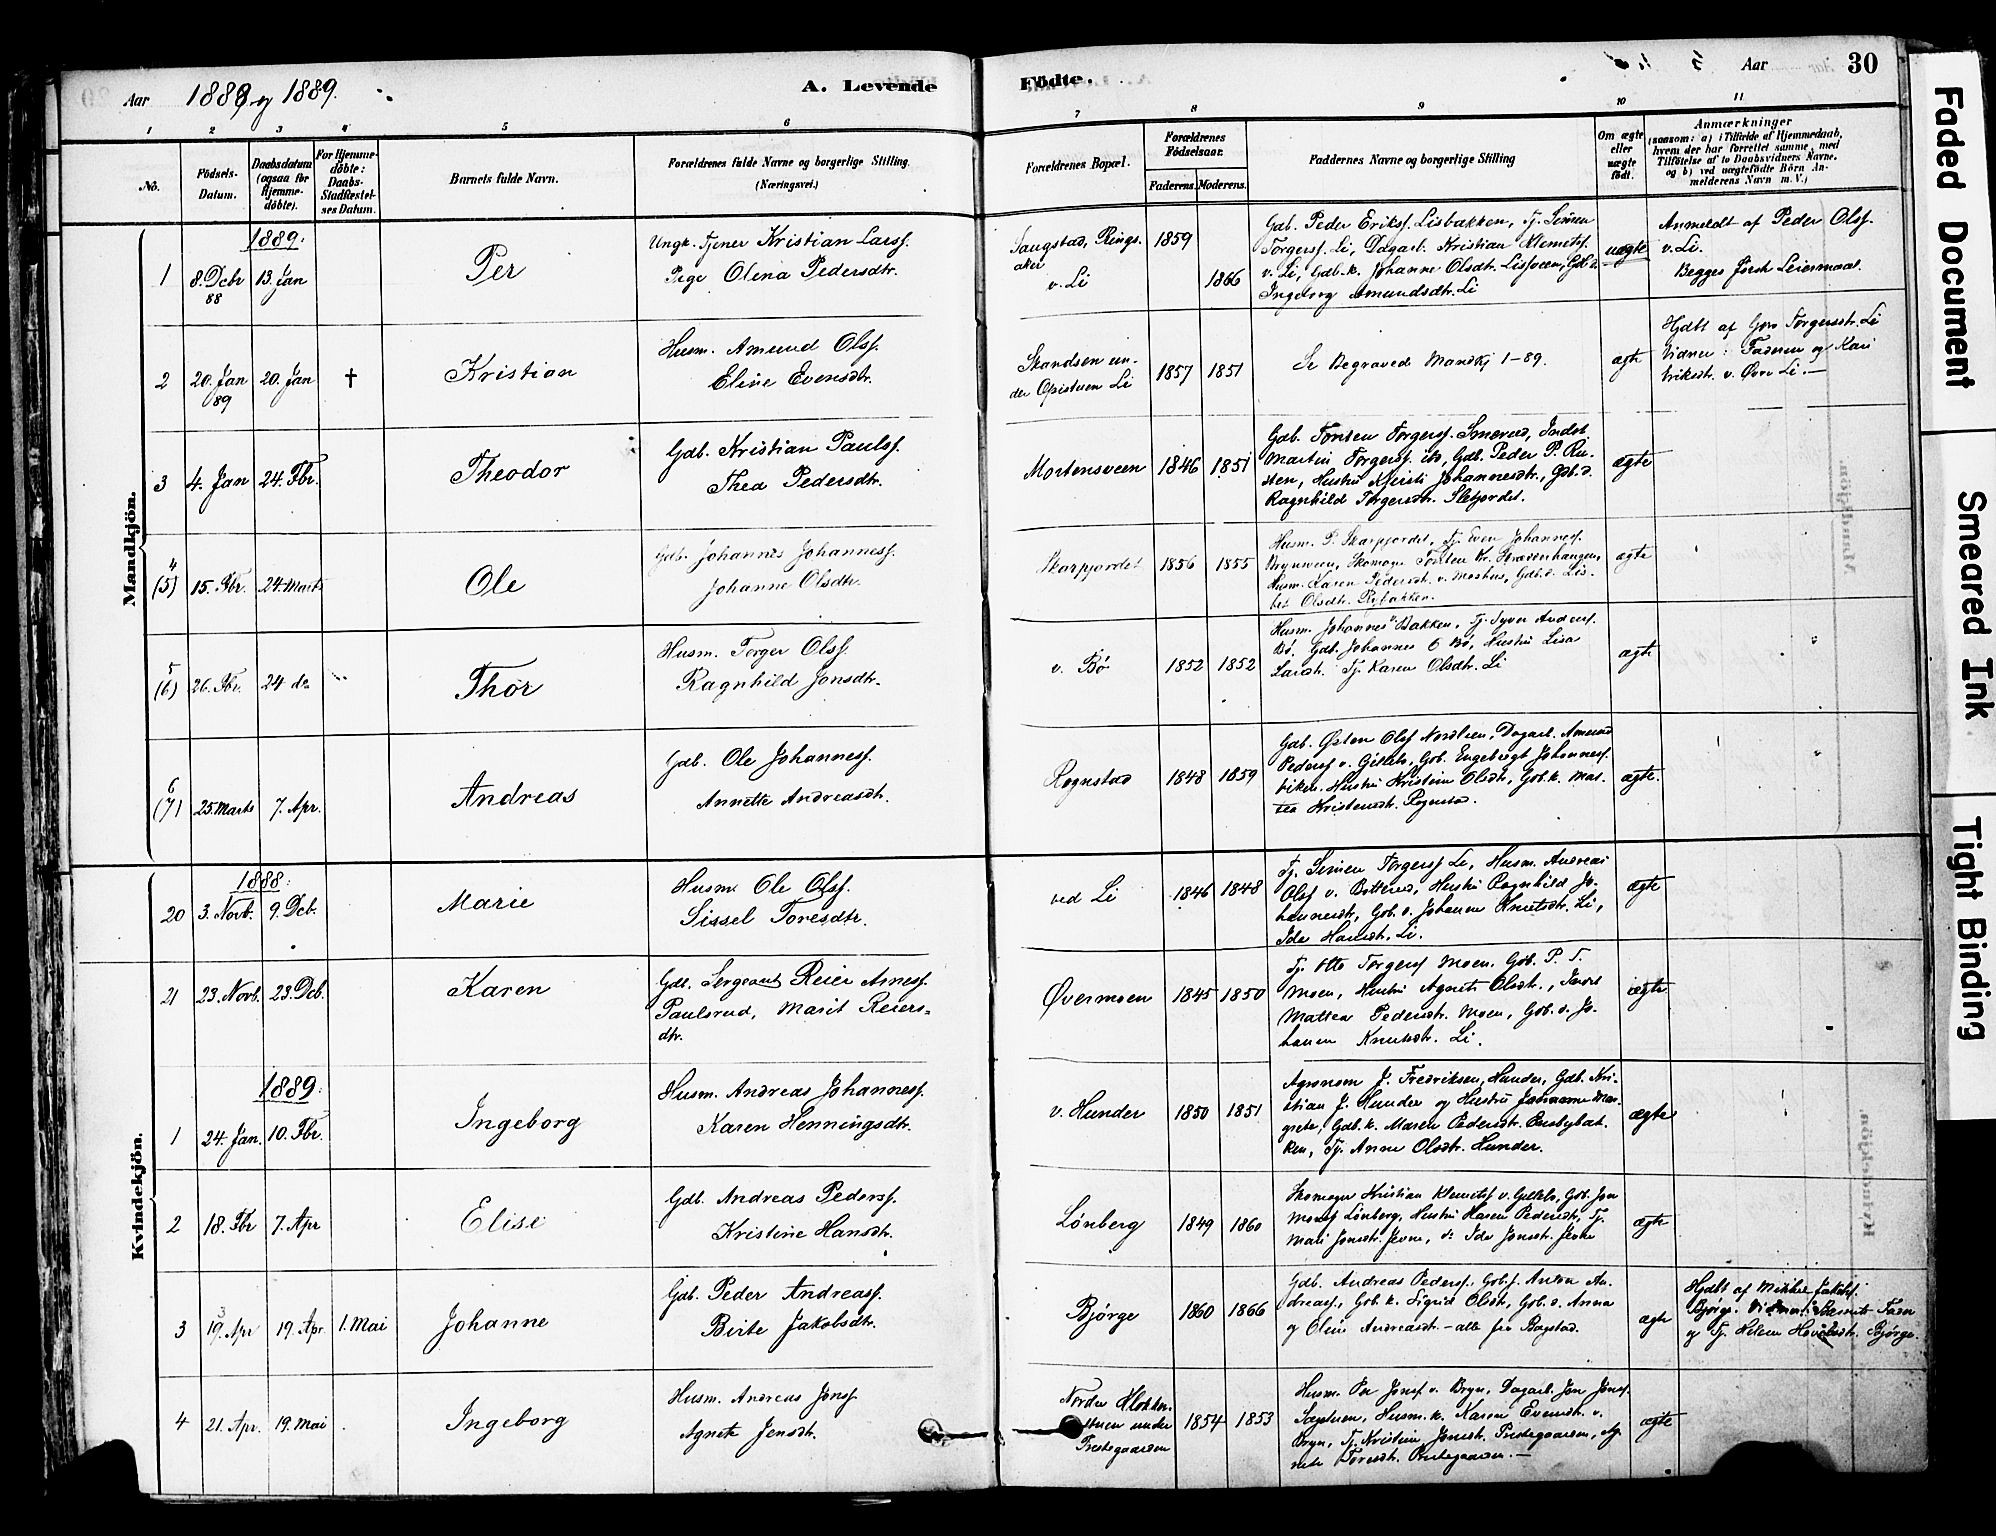 Aar 1888 og 1889.
A. Levende
Födte.
Aar
30
1 2 3 4 5 6 7 8 9 10 11
No.
Födsels-Datum.
Daabsdatum (ogsaa for Hjemme-döbte).
For Hjemme-döbte: Daabs-Stadfæstel-ses Datum.
Barnets fulde Navn.
Forældrenes fulde Navne og borgerlige Stilling.
(Næringsvei.)
Forældrenes Bopæl.
Forældrenes Födselsaar.
Faderens. Moderens.
Faddernes Navne og borgerlige Stilling
Om ægte eller uægte födt.
Anmærkninger
(saasom: a) i Tilfælde af Hjemmedaab, hvem der har forrettet samme, med Tilföielse af to Daabsvidners Navne, og b) ved uægtefödte Börn Anmelderens Navn m. V.)
Mandkjön.
1889:
1 8. Decbr 88 13. Jan Per
Ungk. Tjener Kristian Larsf.
Pige Olena Pedersdtr.
Saugstad, Rings-
aker
v. Li
1859 1866
Gdb. Peder Eriksf. Lisbakken, Tj. Simen
Torgersf. Li, Dagarb. Kristian Klemetsf.
v. Li, Gdb.k. Johanne Olsdtr. Lisveen, Gdb.d.
Ingeborg Amundsdtr. Li
uægte
Anmeldt af Peder Olsf.
v. Li.
Begges første Leiermaal.
2 20. Jan 89 20. Jan † Kristian
Husm. Amund Olsf.
Eline Evensdtr.
Skandsen un-
der Opistuen Li
1857 1851
Se Begravede Mandkj 1-89.
ægte
Hjdbt af Goro Torgersdtr. Li
Vidner: Faderen og Kari
Eriksdtr. v. Øvre Li.
3 4. Jan 24. Fbr. Theodor
Gdb. Kristian Paulsf.
Thea Pedersdtr.
Mortensveen 1846 1851
Gdb. Torsten Torgersf. Smerud, Inds
Martin Torgersf. ib, Gdb. Peder P. Ru-
sten, Hustru Kjersti Johannesdtr., Gdb.d.
Ragnhild Torgersdtr. Slefjordet.
ægte
4 (5) 15. Fbr. 24. Marts Ole
Gdb. Johannes Johannesf.
Johanne Olsdtr.
Skarpjordet 1856 1855
Husm. P. Skarpjordet, Tj. Even Johannesf.
Husm. Karen Pedersdtr. v. Moshus, Gdb.d. Lis-
bet Olsdtr. Rybakken.
ægte
5 (6) 26. Fbr. 24 do Thor
Husm. Torger Olsf.
Ragnhild Jonsdtr.
v. Bö 1852 1852
Husm. Johannes Bakken, Tj. Syver Andersf.
Bö, Gdb. Johannes O Bö, Hustru Lisa
Larsdtr. Tj. Karen Olsdtr. Li
ægte
6 (7) 25. Marts 7. Apr. Andreas
Gdb. Ole Johannesf.
Annette Andreasdtr.
Rognstad 1848 1859
Gdb. Østen Olsf Nordlien, Dagarb. Amund
Pedersf v. Gillebo, Gdb. Engebrigt Johannesf.
viken. Hustru Kristine Olsdtr, Gdb.k. Mat-
tea Kristensdtr. Rognstad.
ægte.
Kvindekjön.
1888:
20 3. Novb. 9. Deb. Marie
Husm. Ole Olsf.
Sissel Toresdtr.
ved Li 1846 1848
Tj. Simen Torgersf Li, Husm. Andreas
Olsf v. Botterud, Hustru Ragnhild Jo-
hannesdtr, Gdb.d. Johanne Knutsdtr. Li,
Ida Hansdtr. Li.
ægte
21 23. Novb. 23. Deb. Karen
Gdb. Sergeant Reier Arnesf.
Paulsrud, Marit Reiers-
dtr.
Øvermoen 1845 1850
Tj. Otto Torgersf Moen. Gdb. P. T.
Moen, Hustru Agnete Olsdtr., Inds
Mattea Pedersdtr. Moen, Gdb.d. Jo-
hanne Knutsdtr. Li.
ægte
1889:
1 24. Jan. 10. Fbr. Ingeborg
Husm. Andreas Johannesf.
Karen Henningsdtr.
v. Hunder 1850 1851
Agronom J. Fredriksen, Hunder, Gdb. Kri-
stian J. Hunder og Hustru Johanne Mar-
grete, Gdb.k. Maren Pedersdtr. Brusbybak-
ken, Tj. Anne Olsdtr. Hunder.
ægte
2 18. Fbr 7. Apr Elise
Gdb. Andreas Pedersf.
Kristine Hansdtr.
Lönberg 1849 1860
Skomager Kristian Klemetsf v. Gillebo, Gdb. Jon
Monsf Lönberg, Hustru Karen Pedersdtr, Tj.
Mari Jonsdtr. Jevne, d: Ida Jonsdtr. Jevne
ægte
3 19. Apr 19. Apr 1. Mai Johanne
Gdb. Peder Andreasf.
Birte Jakobsdtr.
Bjørge 1860 1866
Gdb. Andreas Pedersf., Gdb.f. Anton An-
dreasf., Gdb.k. Sigrid Olsdtr, Gdb.d. Anna
og Oline Andreasdtr - alle fra Bagstad.
ægte
Hjdbt af Mikkel Jakobsf.
Bjørge. Vidner: Barnets Fader
og Tj. Helene Hovelsdtr. Bjørge.
4 21. Apr. 19. Mai Ingeborg
Husm. Andreas Jonsf
Agnete Jensdtr.
Nordre Klokker-
stuen under
Prestegaarden
1854 1853
Husm. Per Jonsf v. Bryn, Dagarb. Jon Jonsf.
Husm.k. Karen Evensdtr. v.
Bryn, Tj. Kristine Jonsdtr. Prestegaarden, Ag-
nete Toresdtr. Prestegaarden.
ægte
Faded Document
Smeared Ink
Tight Binding